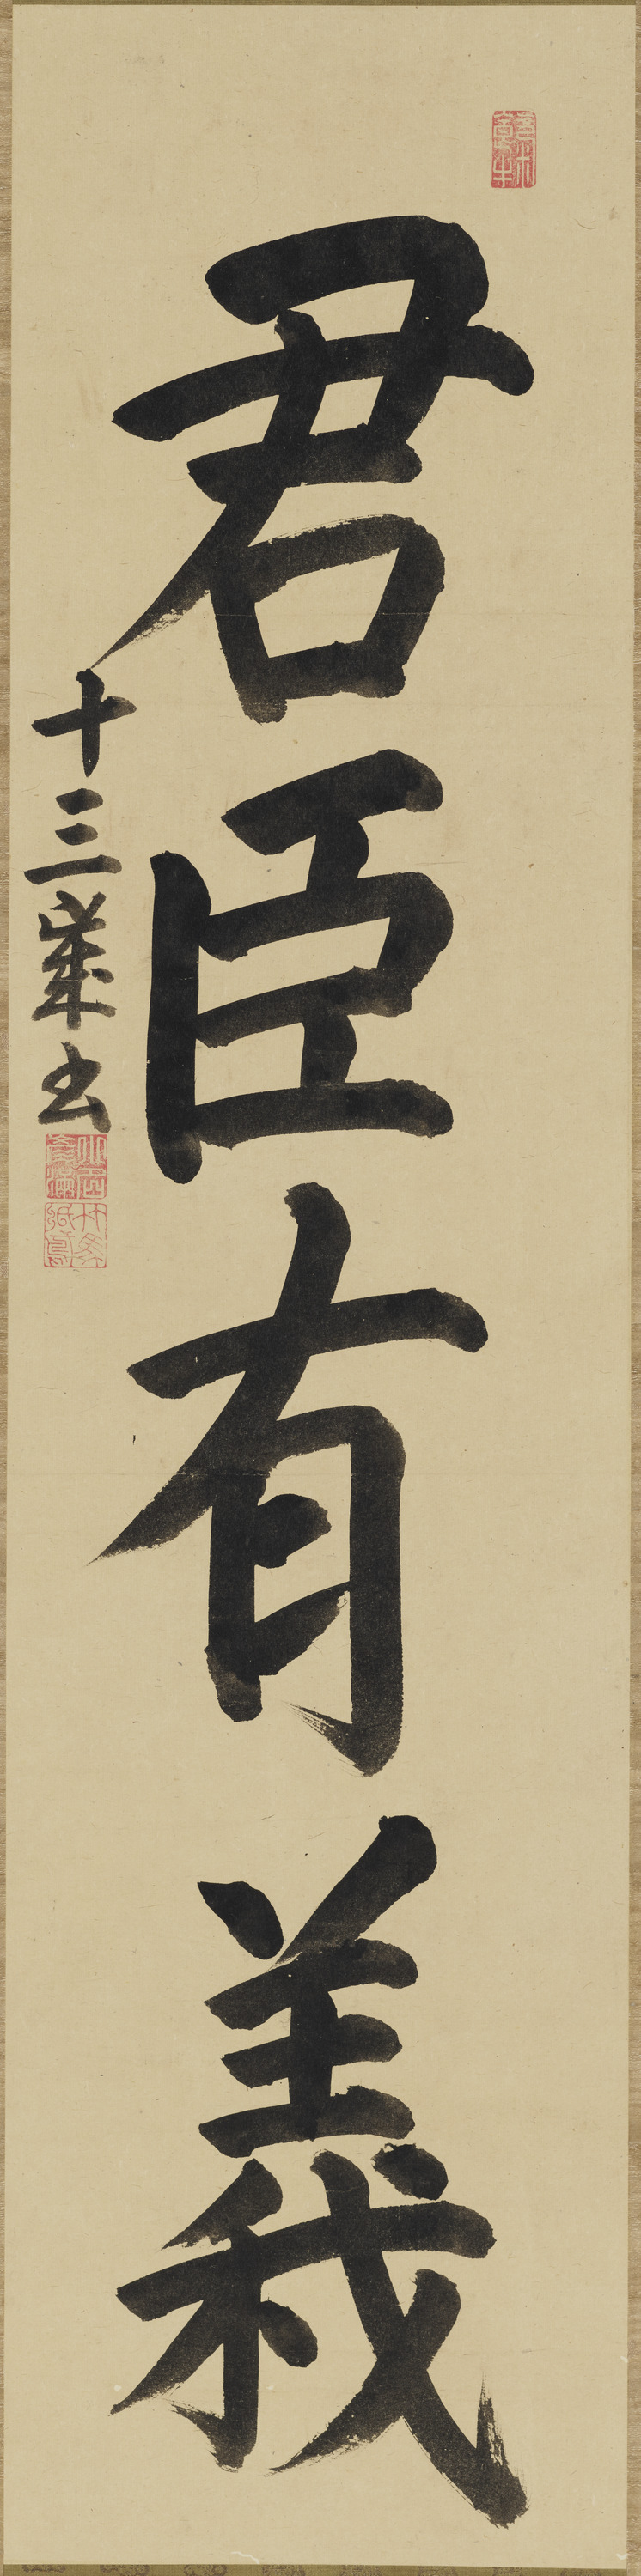 君臣有義
十三歳書